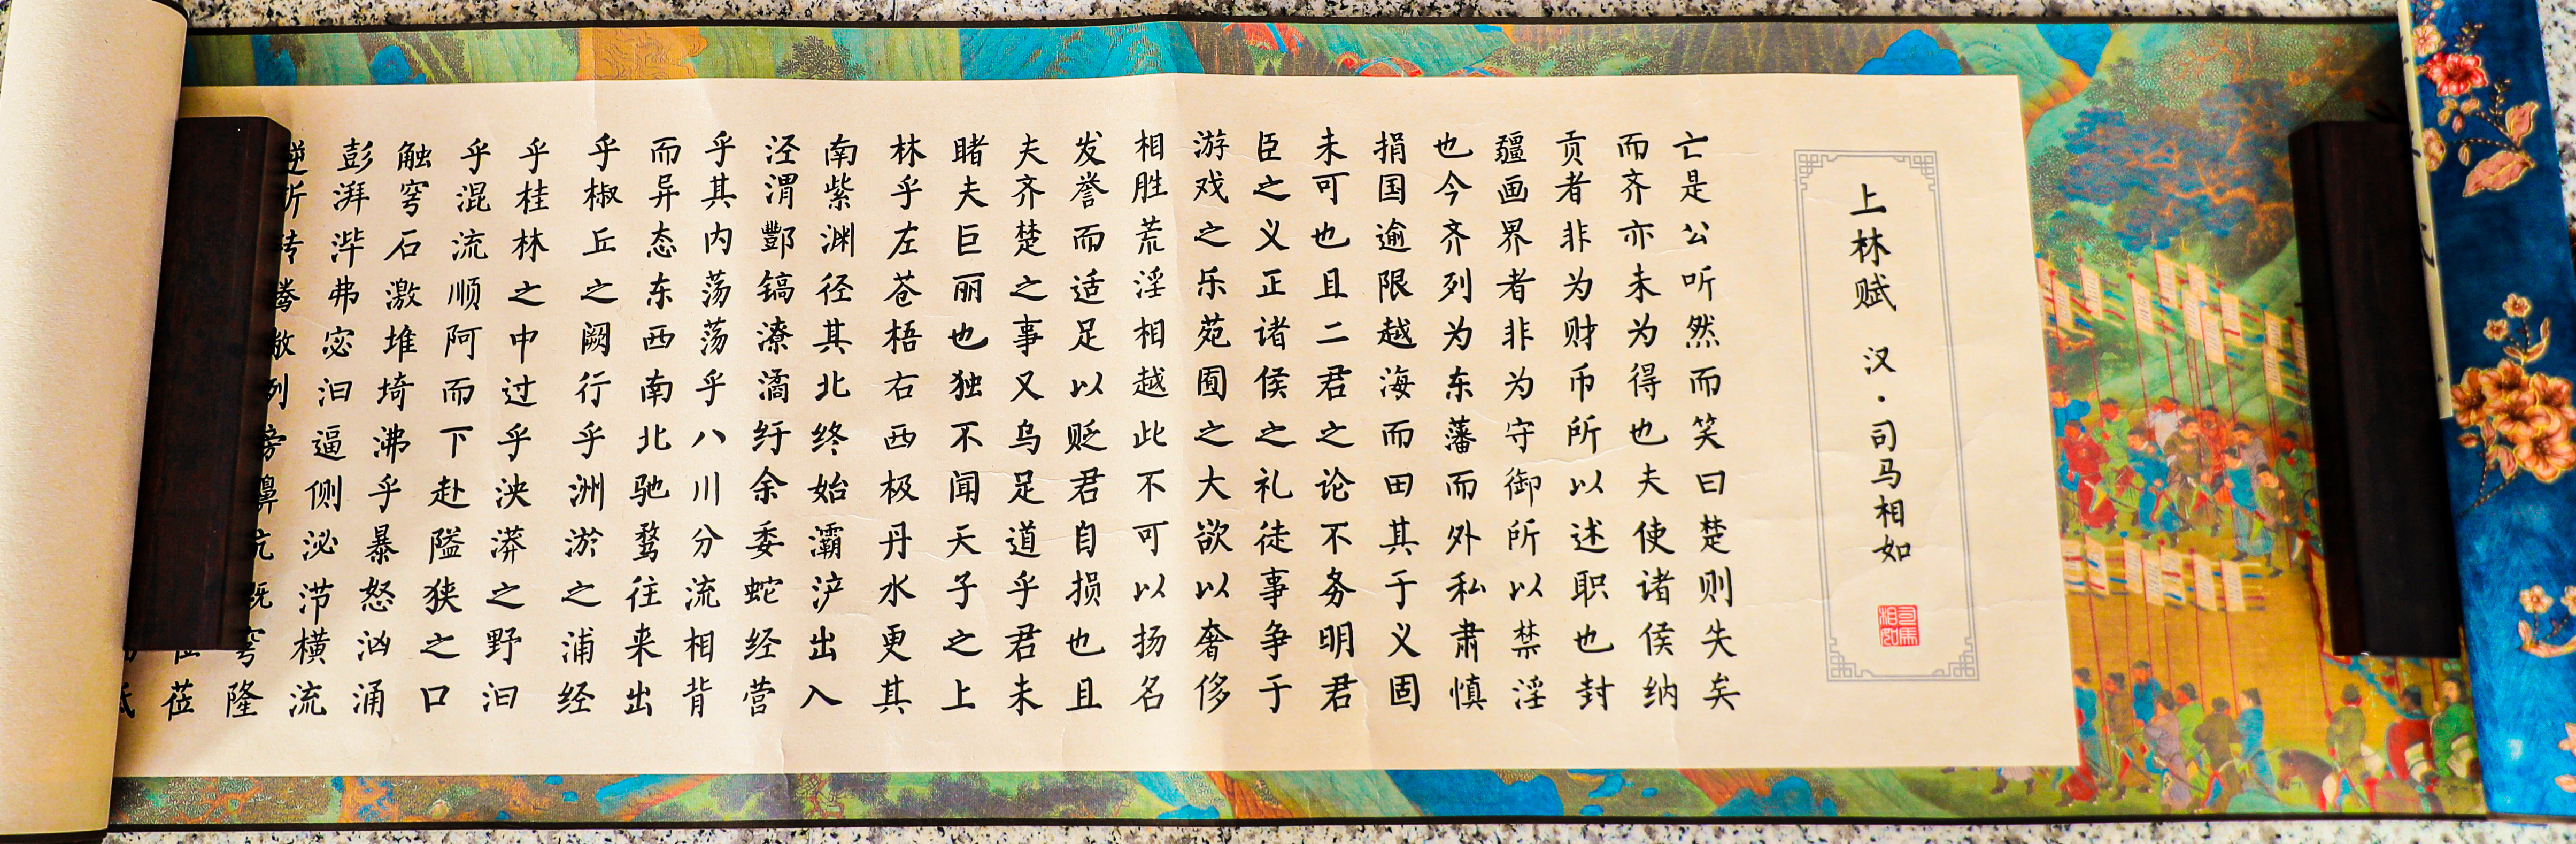 上林赋 汉·司马相如
司馬相如
亡是公听然而笑曰楚则失矣
而齐亦未为得也夫使诸侯纳
贡者非为财币所以述职也封
疆画界者非为守御所以禁淫
也今齐列为东藩而外私肃慎
捐国逾限越海而田其于义固
未可也且二君之论不务明君
臣之义正诸侯之礼徒事争于
游戏之乐苑囿之大欲以奢侈
相胜荒淫相越此不可以扬名
发誉而适足以贬君自损也且
夫齐楚之事又乌足道乎君未
睹夫巨丽也独不闻天子之上
林乎左苍梧右西极丹水更其
南紫渊径其北终始灞浐出入
泾渭酆镐潦潏纡余委蛇经营
乎其内荡荡乎八川分流相背
而异态东西南北驰骛往来出
乎椒丘之阙行乎洲淤之浦经
乎桂林之中过乎泱漭之野汩
乎混流顺阿而下赴隘狭之口
触穹石激堆埼沸乎暴怒汹涌
彭湃滭弗宓汩逼侧泌瀄横流
逆折转腾穹隆
莅